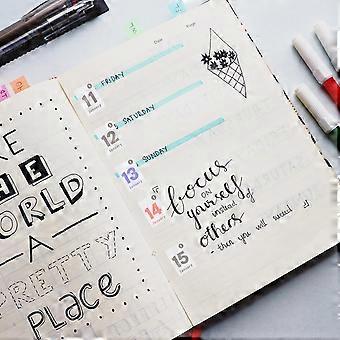 KE
THE
WORLD
A
PRETTY
PLACE
Date Page
11 FRIDAY
12 SATURDAY
13 SUNDAY
14
15
focus
ON
yourself
instead of
others
- then you will succeed